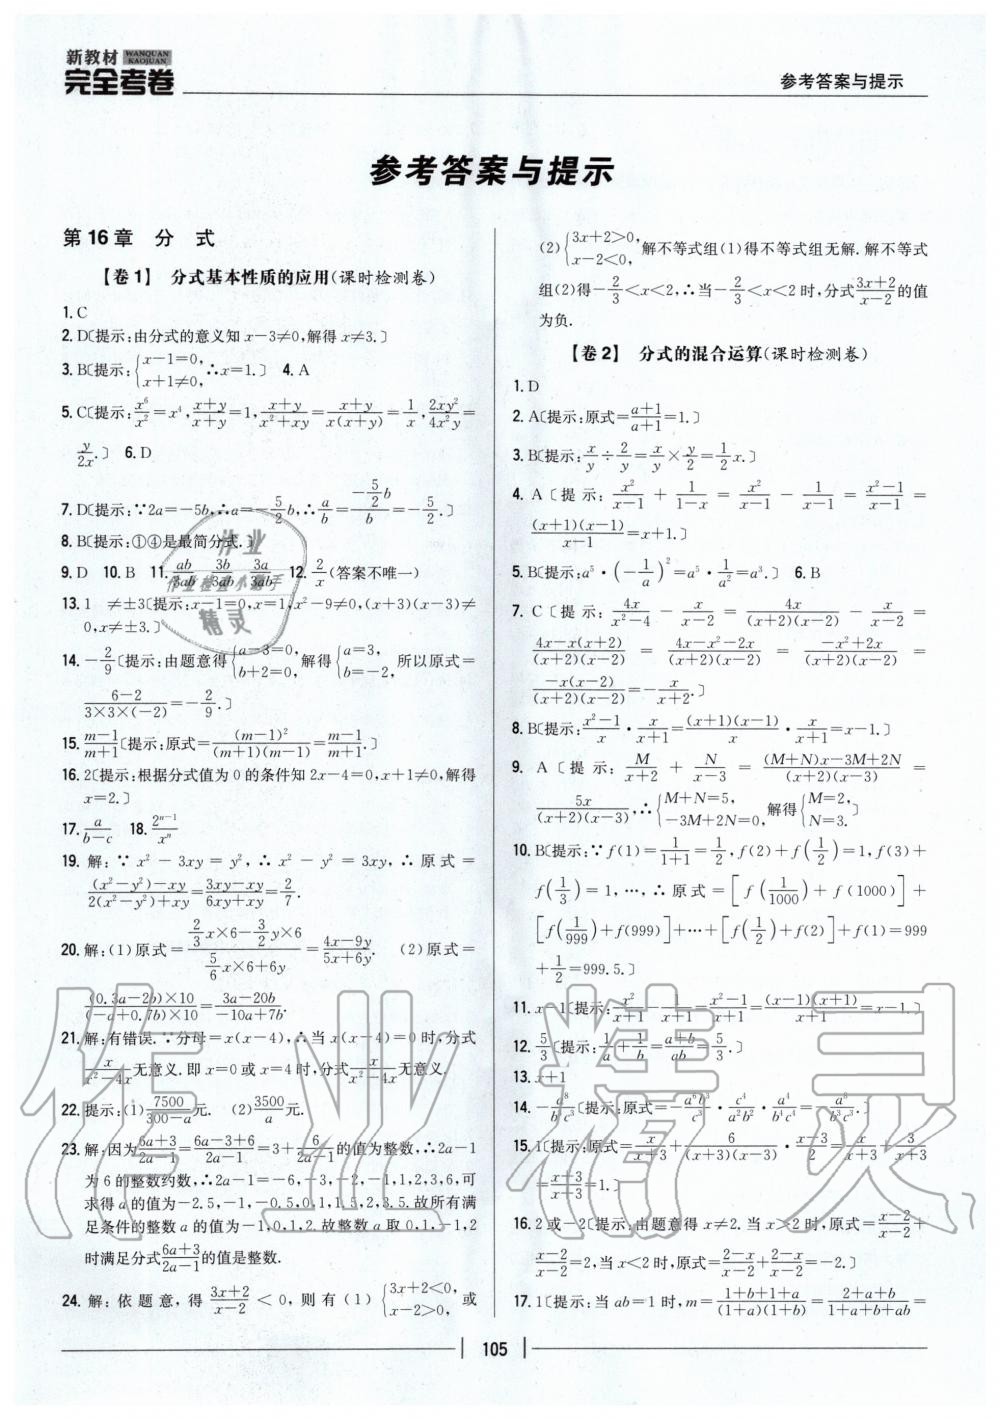 新教材 WANQUAN KAOJUAN
完全考卷
参考答案与提示
参考答案与提示
第16章 分 式
【卷1】 分式基本性质的应用(课时检测卷)
1. C
2. D〔提示:由分式的意义知 x-3≠0,解得 x≠3.〕
3. B〔提示:{x-1=0, x+1≠0, ∴x=1.〕 4. A
5. C〔提示:x^6/x^2=x^4, (x+y)/(x+y)=1, (x+y)/(x^2+xy)=(x+y)/(x(x+y))=1/x, 2xy^2/4x^2y=
y/2x.〕 6. D
7. D〔提示:∵2a=-5b,∴a=-5/2 b,∴a/b=(-5/2 b)/b=-5/2.〕
8. B〔提示:①④是最简分式.〕
9. D 10. B 11. ab/3ab 3b/3ab 3a/3ab 12. 2/x(答案不唯一)
13. 1 ≠±3〔提示:x-1=0,x=1,x^2-9≠0,(x+3)(x-3)≠
0,x≠±3.〕
14. -2/9〔提示:由题意得{a-3=0, b+2=0, 解得{a=3, b=-2, 所以原式=
(6-2)/(3×3×(-2))=-2/9.〕
15. (m-1)/(m+1)〔提示:原式=(m-1)^2/((m+1)(m-1))=(m-1)/(m+1).〕
16. 2〔提示:根据分式值为 0 的条件知 2x-4=0,x+1≠0,解得
x=2.〕
17. a/(b-c) 18. 2^(n-1)/x^n
19. 解:∵ x^2-3xy=y^2,∴ x^2-y^2=3xy,∴ 原式=
((x^2-y^2)-xy)/(2(x^2-y^2)+xy)=(3xy-xy)/(6xy+xy)=2/7.
20. 解:(1)原式=(2/3 x×6-3/2 y×6)/(5/6 x×6+6y)=(4x-9y)/(5x+6y). (2)原式=
((0.3a-2b)×10)/((-a+0.7b)×10)=(3a-20b)/(-10a+7b).
21. 解:有错误.∵分母=x(x-4),∴当 x(x-4)=0 时,分式
x/(x^2-4x)无意义.即 x=0 或 x=4 时,分式x/(x^2-4x)无意义.
22. 提示:(1)7500/(300-a)元. (2)3500/a元.
23. 解:因为(6a+3)/(2a-1)=(6a-3+6)/(2a-1)=3+6/(2a-1)的值为整数,∴2a-1
为 6 的整数约数,∴2a-1=-6,-3,-2,-1,1,2,3,6,可
求得 a 的值为-2.5,-1,-0.5,0,1,1.5,2,3.5.故所有满
足条件的整数 a 的值为-1,0,1,2.故整数 a 取 0,1,-1,2
时满足分式(6a+3)/(2a-1)的值是整数.
24. 解:依题意,得 (3x+2)/(x-2)<0,则有(1){3x+2<0, x-2>0, 或
(2){3x+2>0, x-2<0, 解不等式组(1)得不等式组无解.解不等式
组(2)得-2/3<x<2,∴当-2/3<x<2 时,分式(3x+2)/(x-2)的值
为负.
【卷2】 分式的混合运算(课时检测卷)
1. D
2. A〔提示:原式=(a+1)/(a+1)=1.〕
3. B〔提示:x/y÷2/y=x/y×y/2=1/2 x.〕
4. A〔提示:x^2/(x-1)+1/(1-x)=x^2/(x-1)-1/(x-1)=(x^2-1)/(x-1)=
((x+1)(x-1))/(x-1)=x+1.〕
5. B〔提示:a^5·(-1/a)^2=a^5·1/a^2=a^3.〕 6. B
7. C〔提示:4x/(x^2-4)-x/(x-2)=4x/((x+2)(x-2))-x/(x-2)=
(4x-x(x+2))/((x+2)(x-2))=(4x-x^2-2x)/((x+2)(x-2))=(-x^2+2x)/((x+2)(x-2))=
(-x(x-2))/((x+2)(x-2))=-x/(x+2).〕
8. B〔提示:(x^2-1)/x·x/(x+1)=((x+1)(x-1))/x·x/(x+1)=x-1.〕
9. A〔提示:M/(x+2)+N/(x-3)=((M+N)x-3M+2N)/((x+2)(x-3))=
5x/((x+2)(x-3)),∴{M+N=5, -3M+2N=0, 解得{M=2, N=3.
10. B〔提示:∵f(1)=1/(1+1)=1/2,f(2)+f(1/2)=1,f(3)+
f(1/3)=1,…,∴原式=[f(1/1000)+f(1000)]+
[f(1/999)+f(999)]+…+[f(1/2)+f(2)]+f(1)=999
+1/2=999.5.〕
11. x-1〔提示:x^2/(x+1)-1/(x+1)=(x^2-1)/(x+1)=((x-1)(x+1))/(x+1)=x-1.〕
12. 5/3〔提示:1/a+1/b=(a+b)/ab=5/3.〕
13. x+1
14. -a^8/(b^3c^3)〔提示:原式=-a^6b^3/c^3·c^4/(a^2b^2)·a^4/(b^4c^4)=-a^8/(b^3c^3).〕
15. 1〔提示:原式=x/(x+3)+6/((x+3)(x-3))·(x-3)/2=x/(x+3)+3/(x+3)
=(x+3)/(x+3)=1.〕
16. 2 或-2〔提示:由题意得 x≠2.当 x>2 时,原式=(x-2)/(x-2)+
(x-2)/(x-2)=2.当 x<2 时,原式=(2-x)/(x-2)+(2-x)/(x-2)=-2.〕
17. 1〔提示:当 ab=1 时,m=(1+b+1+a)/((1+a)(1+b))=(2+a+b)/(1+a+b+ab)=
105
作业精灵
作业
作业检查小帮手
精灵